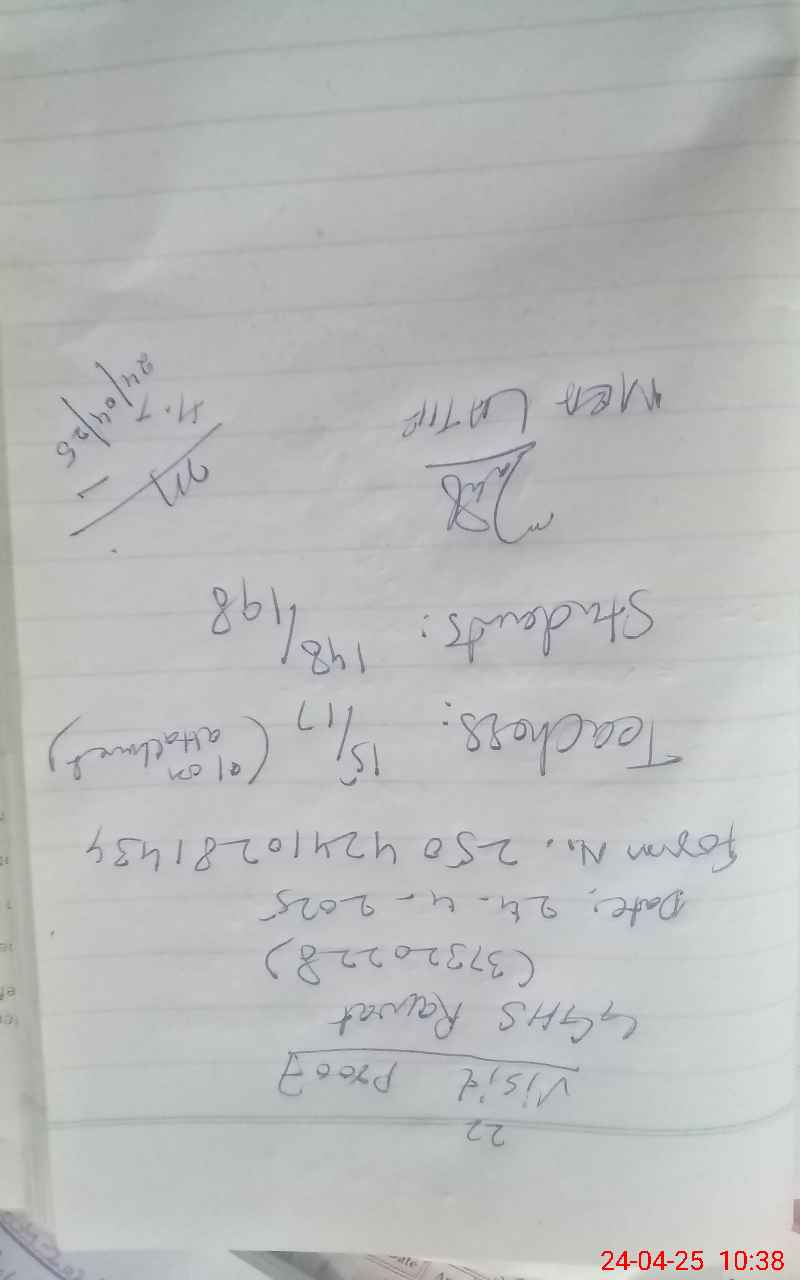 22
Visit Proof
GGHS Rawat
(37320228)
Date: 24-4-2025
Form No. 25042410281434
Teachers: 15/17 (01 on attachment)
Students: 148/198
MEA LATIF
H.T
24/04/25
24-04-25 10:38